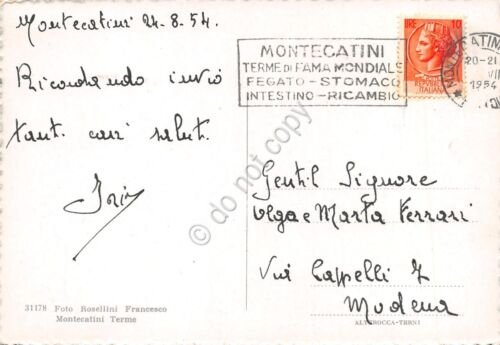 Montecatini 24.8.54.
Ricordando invio
tanti cari saluti.
MONTECATINI
TERME DI FAMA MONDIALE
FEGATO - STOMACO
INTESTINO - RICAMBIO
LIRE 10
REPUBBLICA
ITALIANA
20-21
1954
do not copy
Gentil Signore
Olga e Marta Ferrari
Via Cappelli 7
Modena
31178 Foto Rosellini Francesco
Montecatini Terme
ALTEROCCA-TERNI